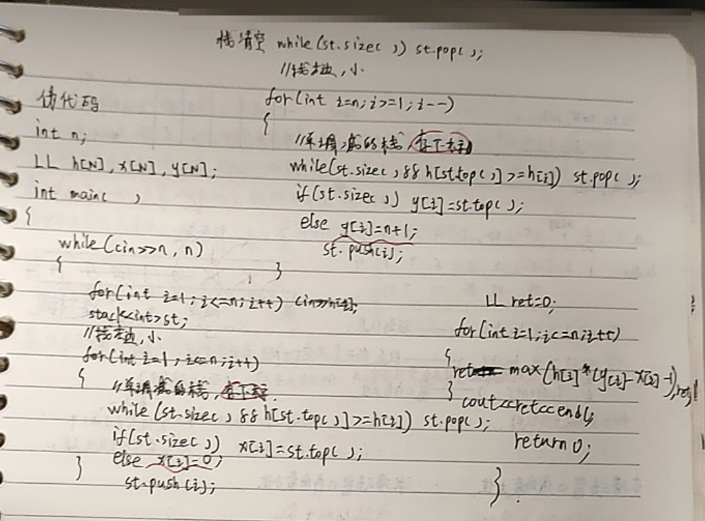 栈清空 while(st.size()) st.pop();
//找右边,小
伪代码
for(int i=n;i>=1;i--)
{
int n;
//单调 的栈,
LL h[N],x[N],y[N];
while(st.size() && h[st.top()]>=h[i]) st.pop();
int main()
if(st.size()) y[i]=st.top();
{
else y[i]=n+1;
st.push(i);
}
while(cin>>n, n)
{
for(int i=1;i<=n;i++) cin>>h[i];
stack<int>st;
//找左边,小
for(int i=1;i<=n;i++)
{
//单调 的栈,
while(st.size() && h[st.top()]>=h[i]) st.pop();
if(st.size()) x[i]=st.top();
else x[i]=0;
}
st.push(i);
LL ret=0;
for(int i=1;i<=n;i++)
{
ret= max(h[i]*(y[i]-x[i]-1),ret)
}
cout<<ret<<endl;
return 0;
}